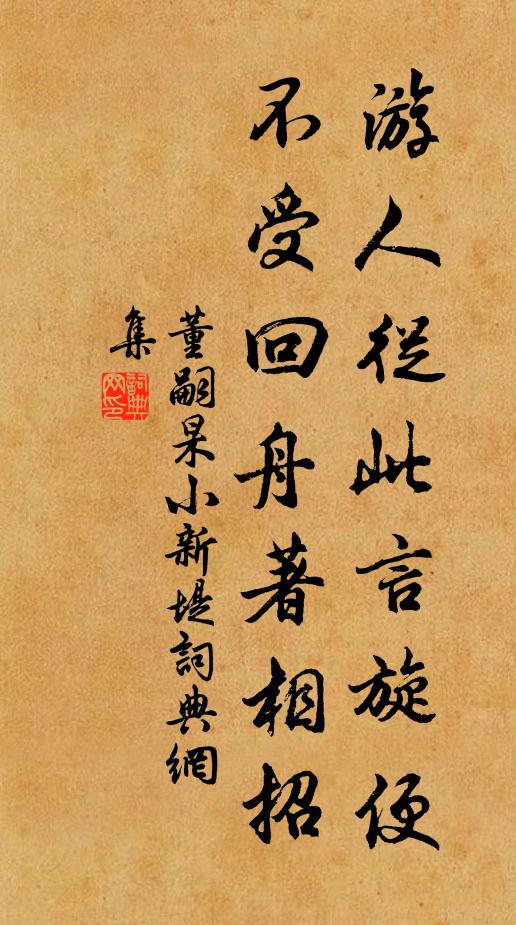 游人從此言旋便
不受回舟著相招
董嗣杲小新堤詞典網
集
詞典
网印